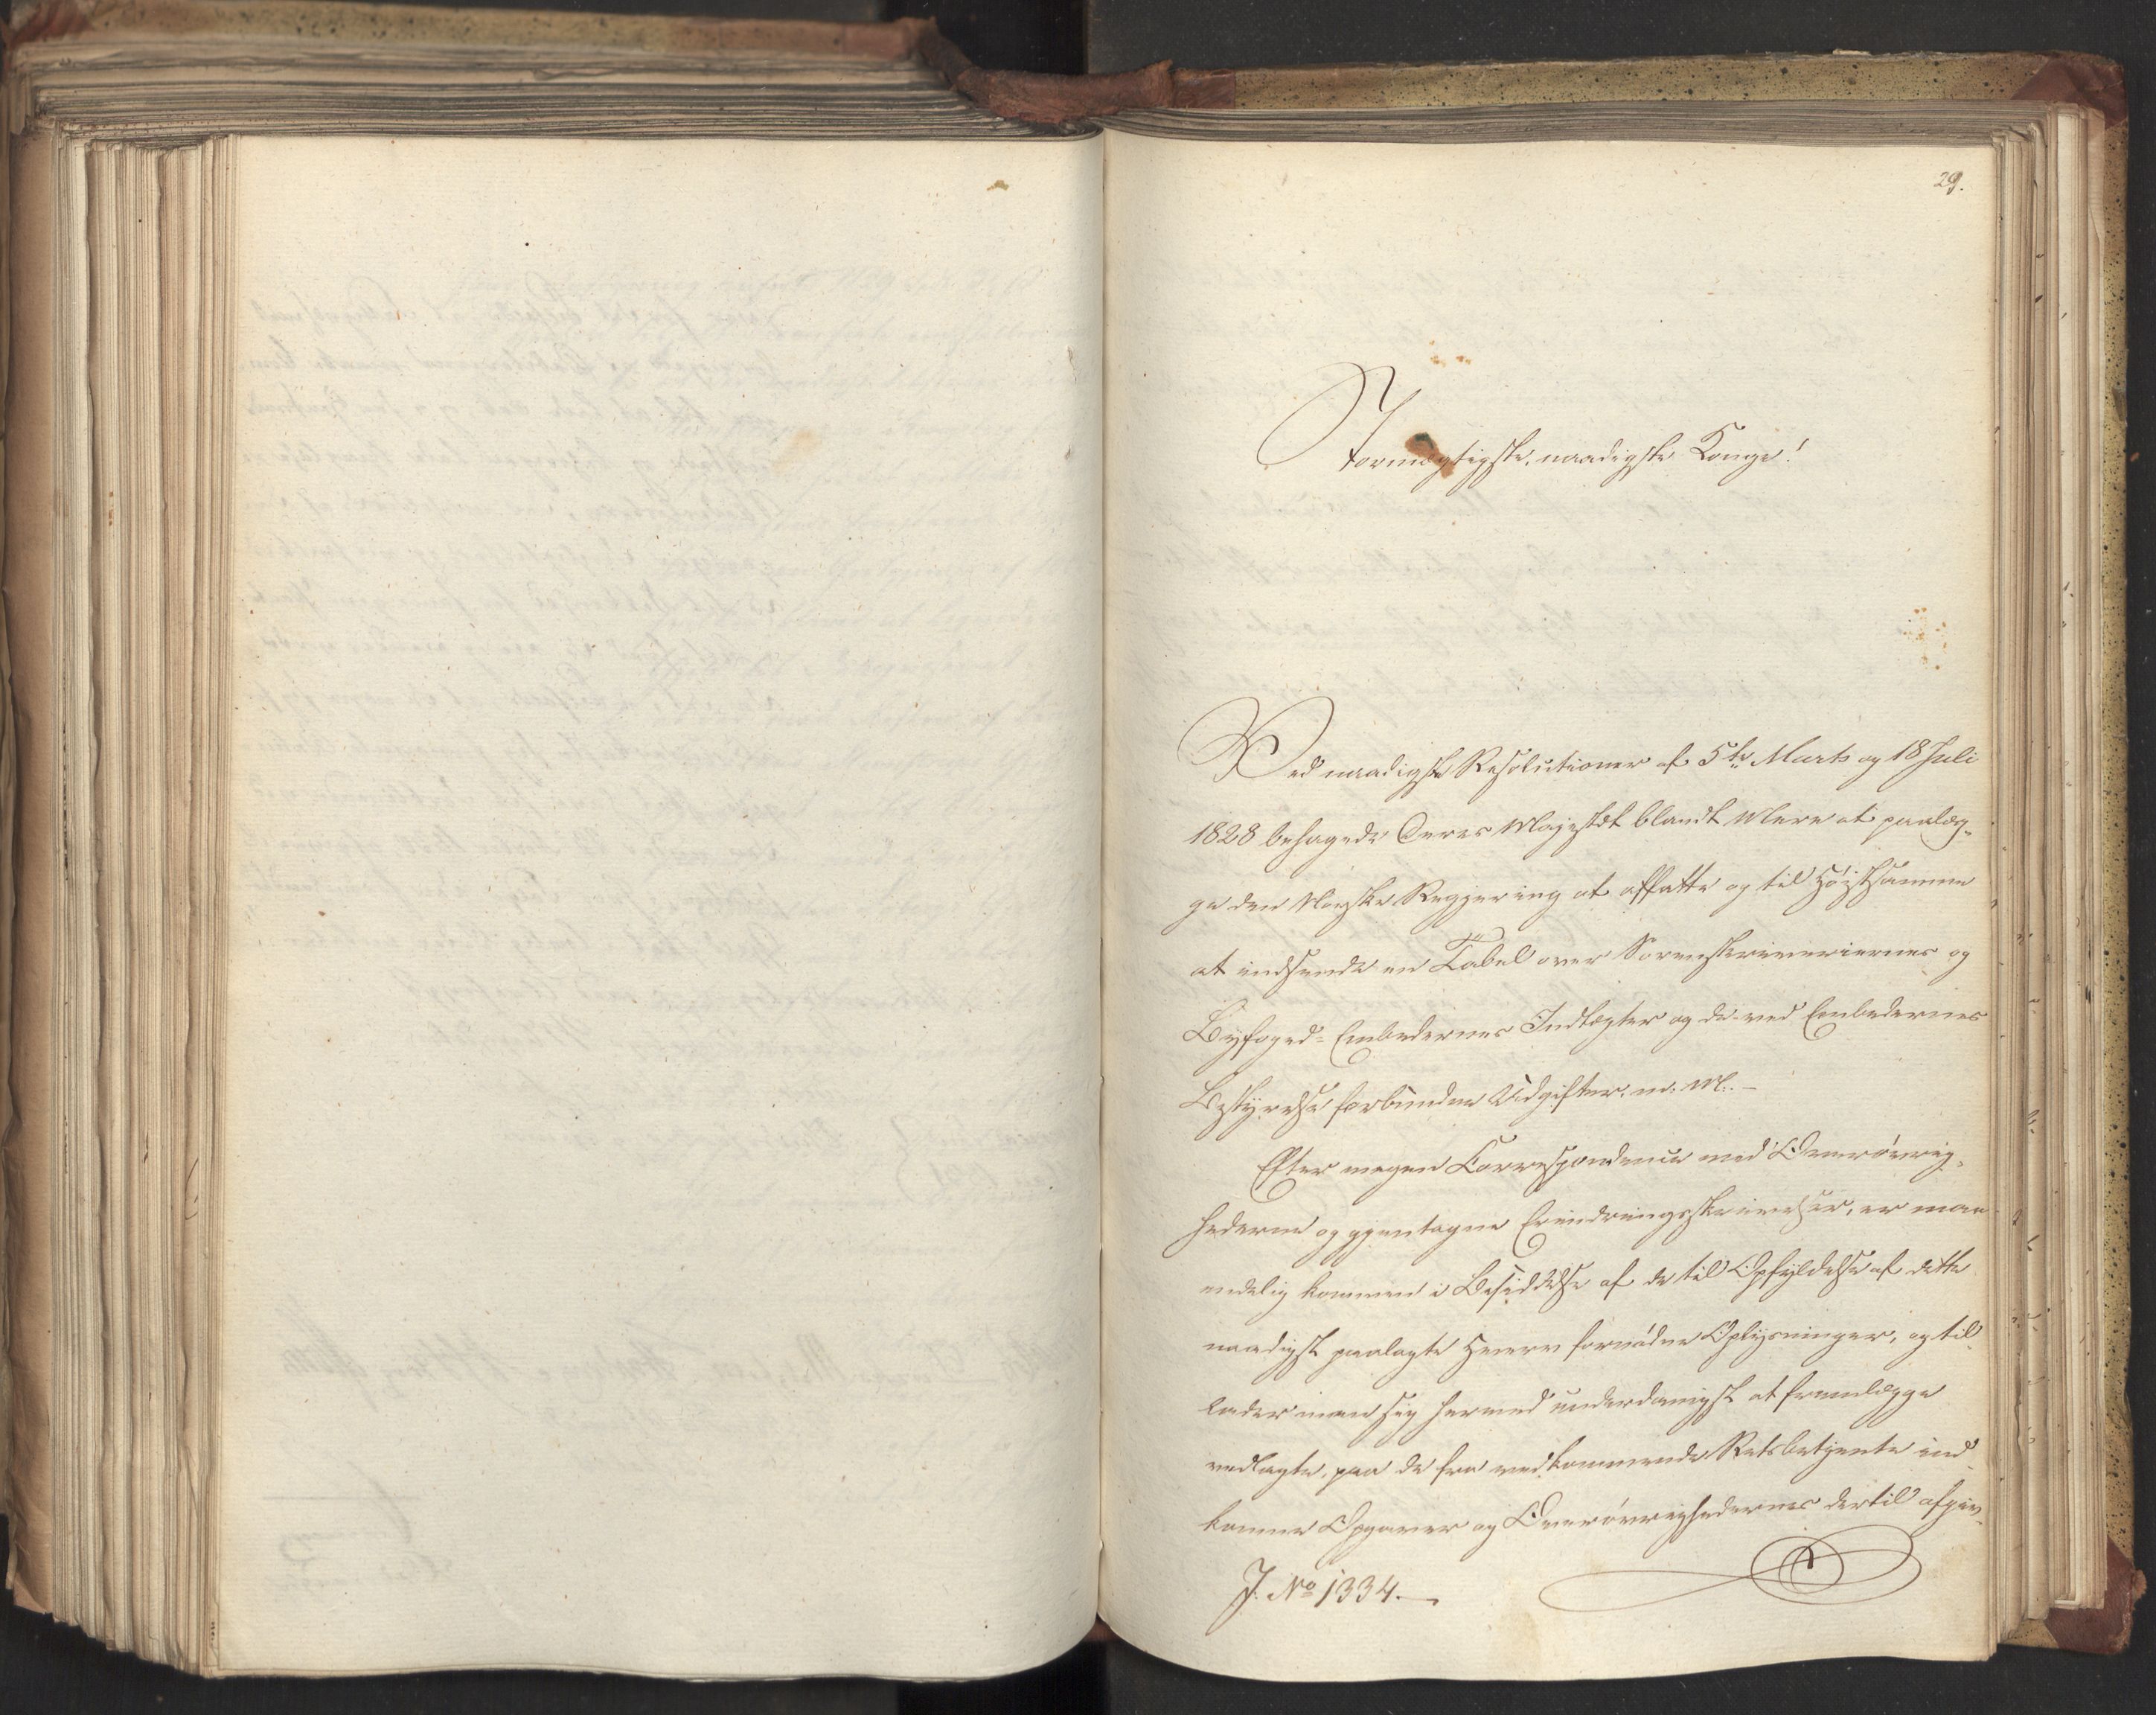 29.
Stormægtigste, naadigste Konge!
Ved naadigste Resolutioner af 5te Marts og 18 Juli
1828 behagede Deres Majestæt blandt Mere at paalæg-
ge den Norske Regjering at affatte og til Høistsamme
at indsende en Tabel over Sorenskriveriernes og
Byfoged-Embedernes Indtægter og de ved Embedernes
Bestyrelse forbundne Udgifter m: M:. –
Efter megen Correspondence med Overøvrig-
hederne og gjentagne Erindringsskrivelser, er man
endelig kommen i Besiddelse af de til Opfyldelse af dette
naadigst paalagte Hverv fornødne Oplysninger, og til-
lader man sig hermed underdanigst at fremlægge
vedlagte, paa de fra vedkommende Retsbetjente ind-
komne Opgaver og Overøvrighedernes dertil afgiv-
J. No 1334. –